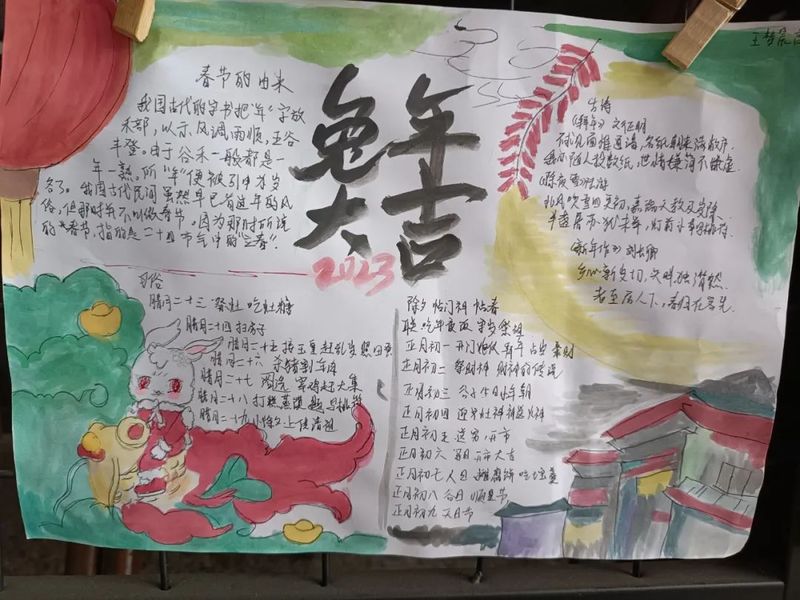 春节的由来
我国古代的字书把"年"字放
禾部,以示风调雨顺,五谷
丰登。由于谷禾一般都是一
年一熟。所"年"便被引申为岁
名了。我国古代民间虽然早已有过年的风
俗,但那时并不叫做春节。因为那时所说
的春节,指的是二十四节气中的"立春"。
兔年
大吉
2023
古诗
《拜年》文征明
不求见面惟通谒,名纸朝来满敝庐.
我亦随人投数纸,世情嫌简不嫌虚
《除夜雪》陆游
北风吹雪四更初,嘉瑞天教及岁除
半盏屠苏犹未举,灯前小草写桃符
《新年作》刘长卿
乡心新岁切,天畔独潸然.
老至居人下,春归在客先.
习俗
腊月二十三 祭灶 吃灶糖
腊月二十四 扫房子
腊月二十五 接玉皇 赶乱岁 照田蚕
腊月二十六 杀猪割年肉
腊月二十七 宰鸡赶大集
腊月二十八 打糕蒸馍 贴
腊月二十九 小除夕 上 请祖
除夕 贴门神 贴春
联 吃年夜饭 守岁 祭祖
正月初一 开门炮仗 拜年 占岁 聚财
正月初二 祭财神
正月初三 小年朝
正月初四 迎 灶神
正月初五 送穷,开市
正月初六 开市大吉
正月初七 人日
正月初八 谷日 顺星节
正月初九 天日节